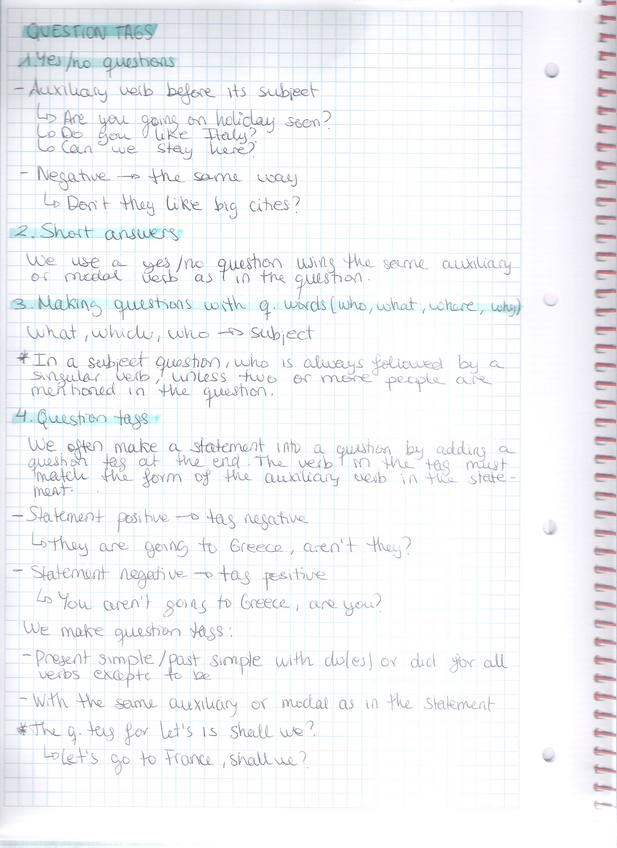 QUESTION TAGS
1. Yes/no questions
- Auxiliary verb before its subject
↳ Are you going on holiday soon?
↳ Do you like Italy?
↳ Can we stay here?
- Negative → the same way
↳ Don't they like big cities?
2. Short answers
We use a yes/no question using the same auxiliary
or modal verb as in the question.
3. Making questions with q. words (who, what, where, why)
What, which, who → subject
* In a subject question, who is always followed by a
singular verb, unless two or more people are
mentioned in the question.
4. Question tags
We often make a statement into a question by adding a
question tag at the end. The verb in the tag must
match the form of the auxiliary verb in the state-
ment.
- Statement positive → tag negative
↳ They are going to Greece, aren't they?
- Statement negative → tag positive
↳ You aren't going to Greece, are you?
We make question tags:
- Present simple/past simple with do(es) or did for all
verbs excepte to be
- With the same auxiliary or modal as in the statement
* The q. tag for let's is shall we?
↳ Let's go to France, shall we?